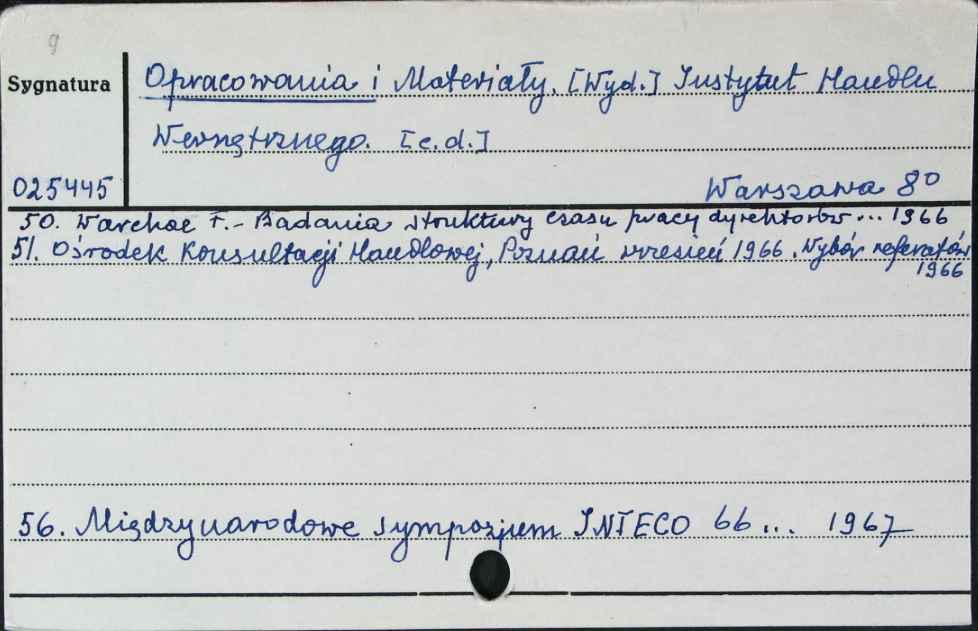 g
Sygnatura
Opracowania i Materiały. [Wyd.] Instytut Handlu
Wewnętrznego. [c.d.]
025445
Warszawa 8º
50. Warchoł F. - Badania struktury czasu pracy dyrektorów... 1966
51. Ośrodek Konsultacji Handlowej, Poznań wrzesień 1966. Wybór referatów
1966
56. Międzynarodowe sympozjum INTECO 66... 1967